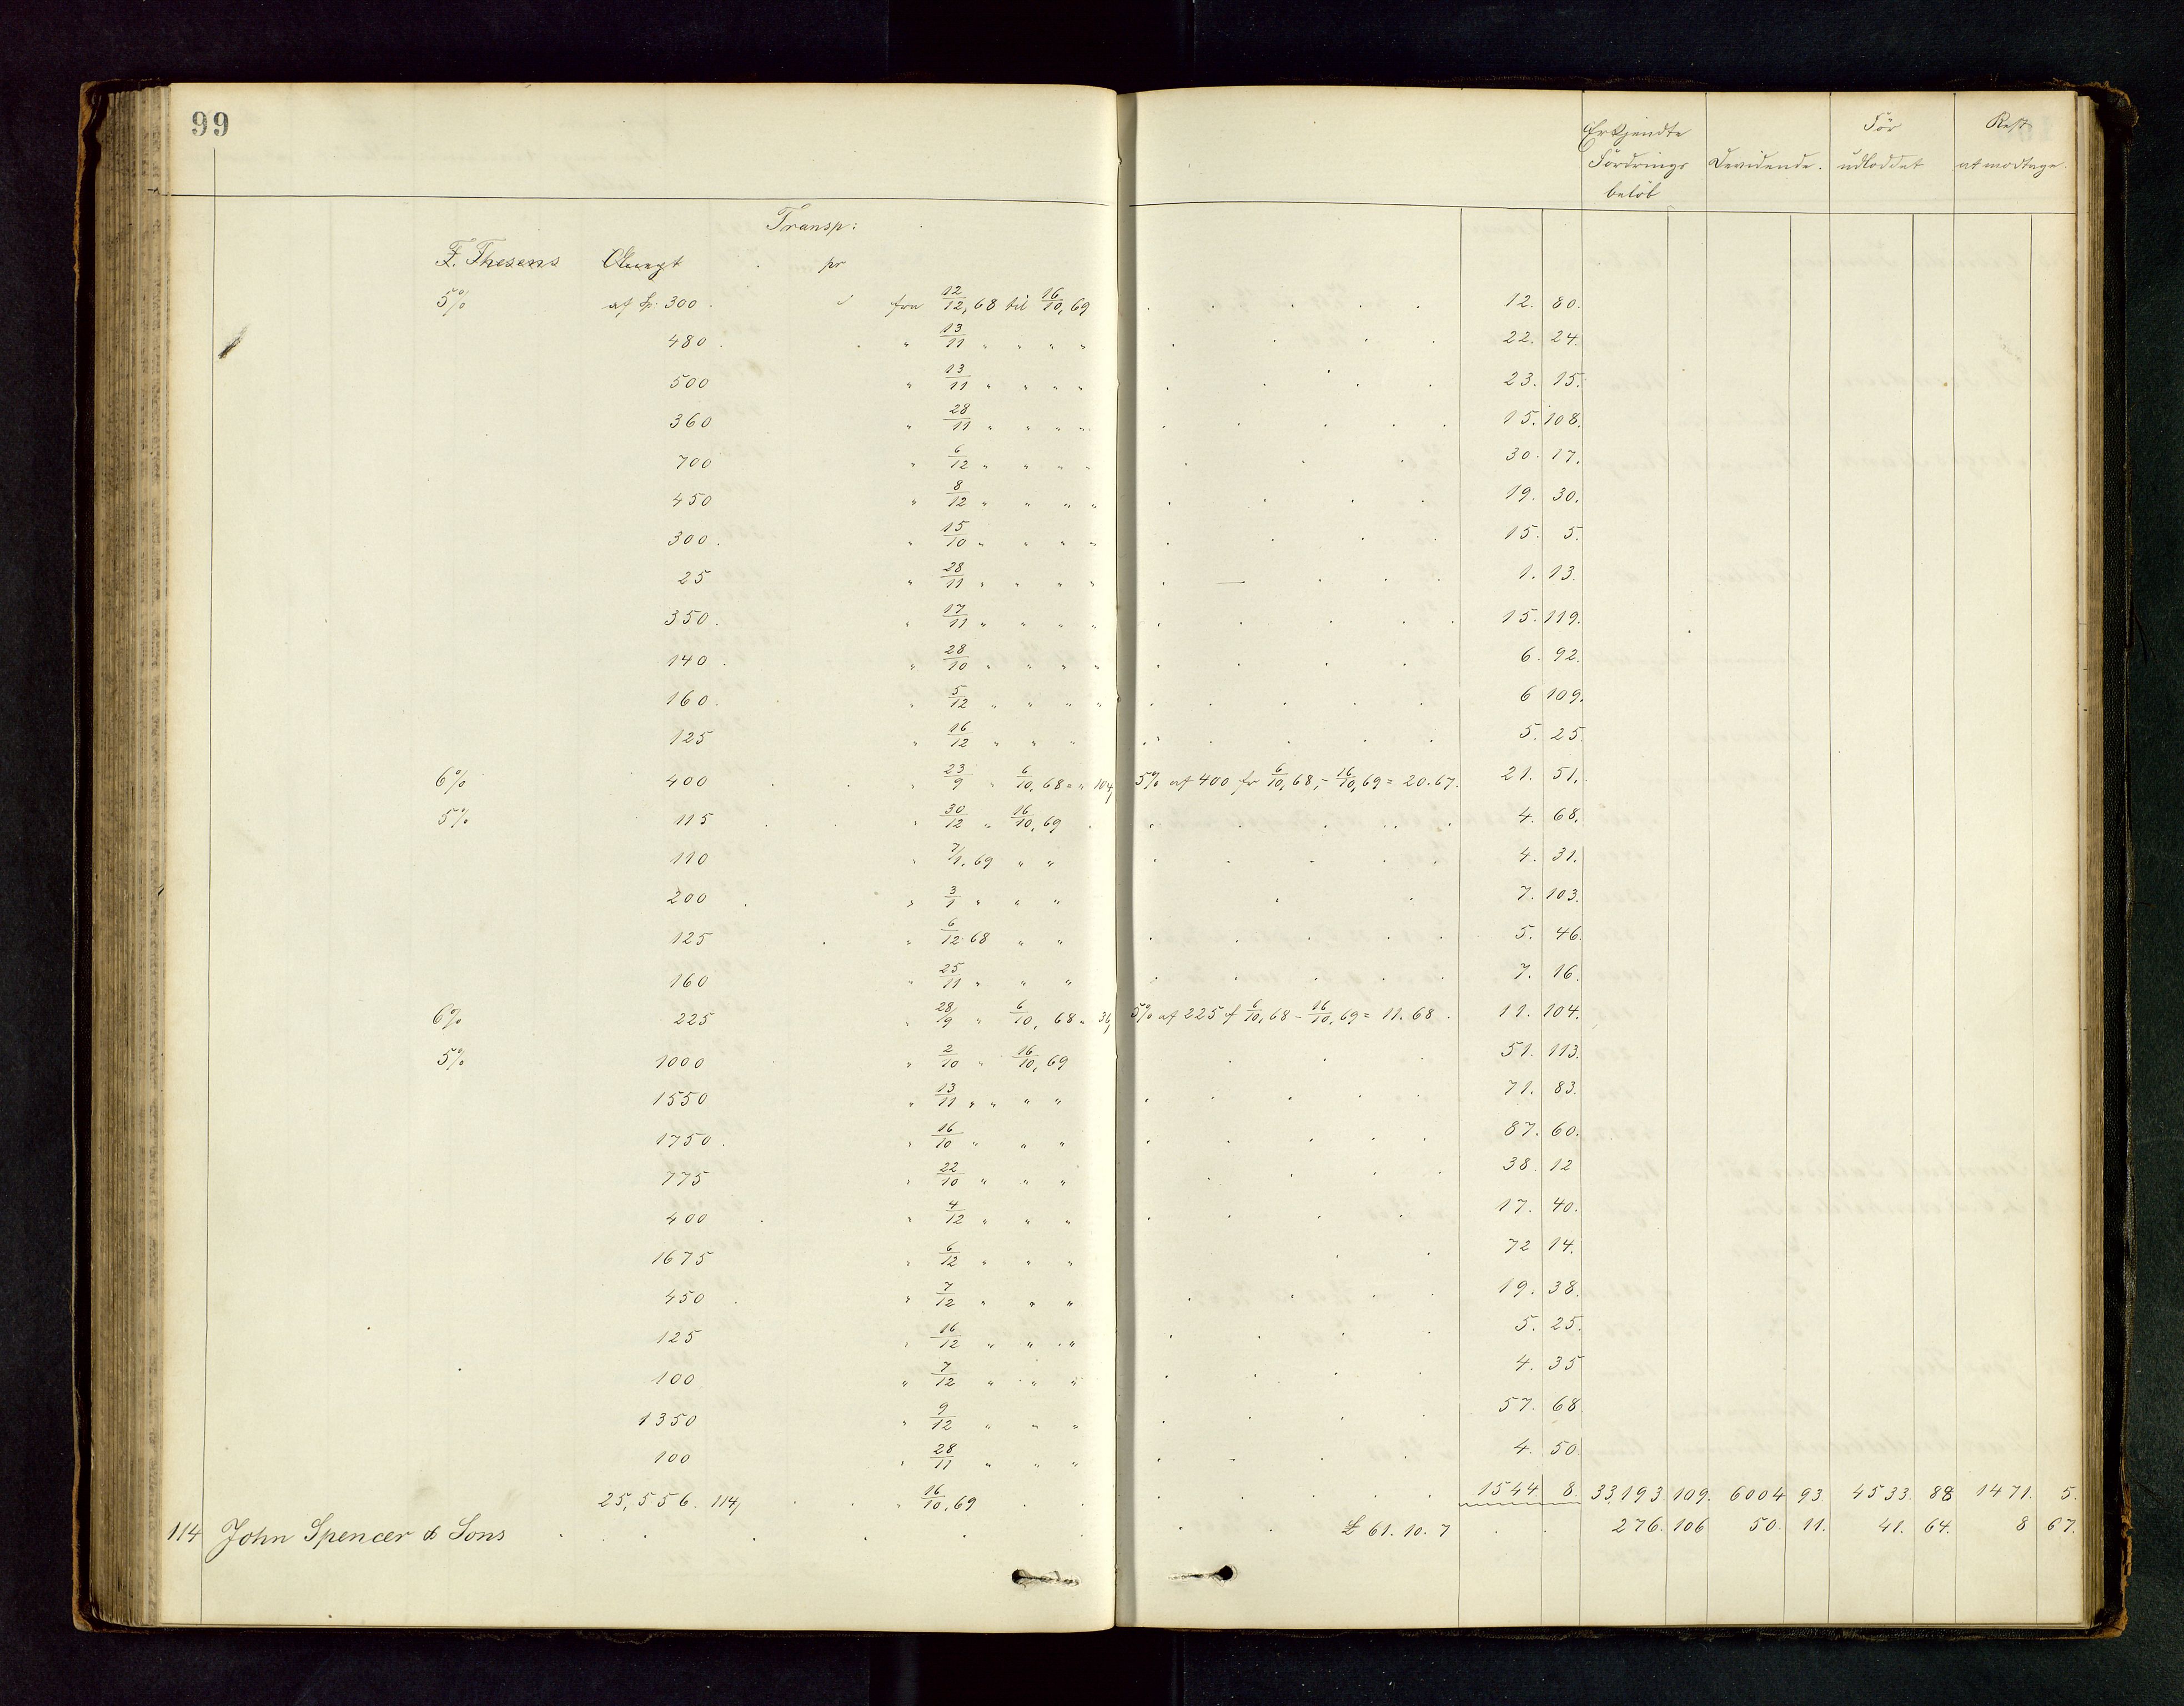 99
Erkjendte Fordrings beløb
Devidende.
Før udloddet
Rest at modtage.
Transp:
F. Thesens Accept pr
5% af Sp: 300. fra 12/12, 68 til 16/10, 69 12. 80.
480. " 13/11 " " " " 22. 24.
500 " 13/11 " " " " 23. 15.
360 " 28/11 " " " " 15. 108.
700 " 6/12 " " " " 30. 17.
450 " 8/12 " " " " 19. 30.
300. " 15/10 " " " " 15. 5.
25 " 28/11 " " " " 1. 13.
350. " 17/11 " " " " 15. 119.
140. " 28/10 " " " " 6. 92.
160. " 5/12 " " " " 6 109.
125 " 16/12 " " " 5. 25.
6% 400 " 23/9 " 6/10, 68 = " 104, 5% af 400 fr 6/10, 68, - 16/10, 69 = 20.67. 21. 51.
5% 115 " 30/12 " 16/10, 69 4. 68.
110 " 7/1. 69 " " 4. 31.
200 " 3/1 " " " 7. 103.
125 " 6/12 68 " " 5. 46.
160 " 25/11 " " " 7. 16.
6% 225 " 28/9 " 6/10, 68 " 36, 5% af 225 f 6/10, 68 - 16/10, 69 = 11. 68. 11. 104.
5% 1000 " 2/10 " 16/10, 69 51. 113.
1550 " 13/11 " " " " 71. 83.
1750. " 16/10 " " " 87. 60.
775 " 22/10 " " " 38. 12
400 " 4/12 " " " 17. 40.
1675 " 6/12 " " " 72 14.
450 " 7/12 " " " 19. 38.
125 " 16/12 " " " 5. 25.
100 " 7/12 " " " 4. 35
1350 " 9/12 " " " 57. 68
100 " 28/11 " " " 4. 50.
25,556. 114, " 16/10, 69 1544 8. 33,193 109. 6004 93. 4533. 88 1471. 5.
114 John Spencer & Sons £ 61. 10. 7 276. 106 50. 11. 41. 64. 8 67.